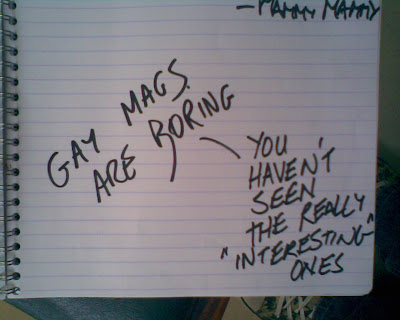 — MAMMY MAMMY
GAY MAGS.
ARE BORING
YOU
HAVEN'T
SEEN
THE REALLY
"INTERESTING"
ONES